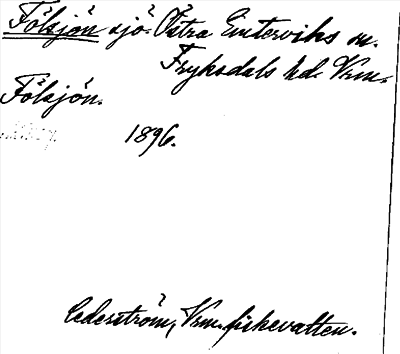 Fölsjön sjö. Östra Emterviks sn.
Fryksdals hd. Vrm.
Fölsjön.
1896.
Cederström, Vrm. fiskevatten.